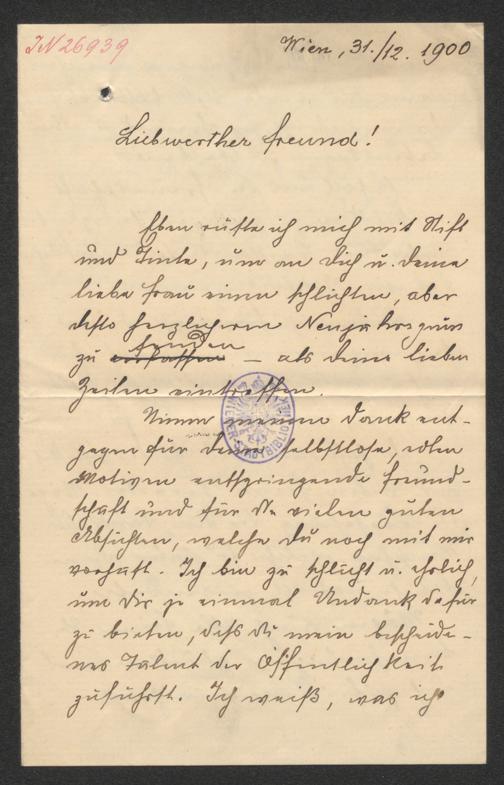 IN 26939
Wien, 31./12. 1900
Liebwerther Freund!
Eben rüste ich mich mit Stift
und Tinte, um an Dich u. Deine
liebe Frau einen schlichten, aber
desto herzlicheren Neujahrsgruss
senden
zu — als Deine lieben
Zeilen eintreffen.
Nimm meinen Dank ent-
gegen für Deine selbstlose, edlen
Motiven entspringende Freund-
schaft und für die vielen guten
Absichten, welche Du noch mit mir
vorhast. Ich bin zu schlicht u. ehrlich,
um Dir je einmal Undank dafür
zu bieten, dass Du mein bescheide-
nes Talent der Öffentlichkeit
zuführst. Ich weiß, was ich